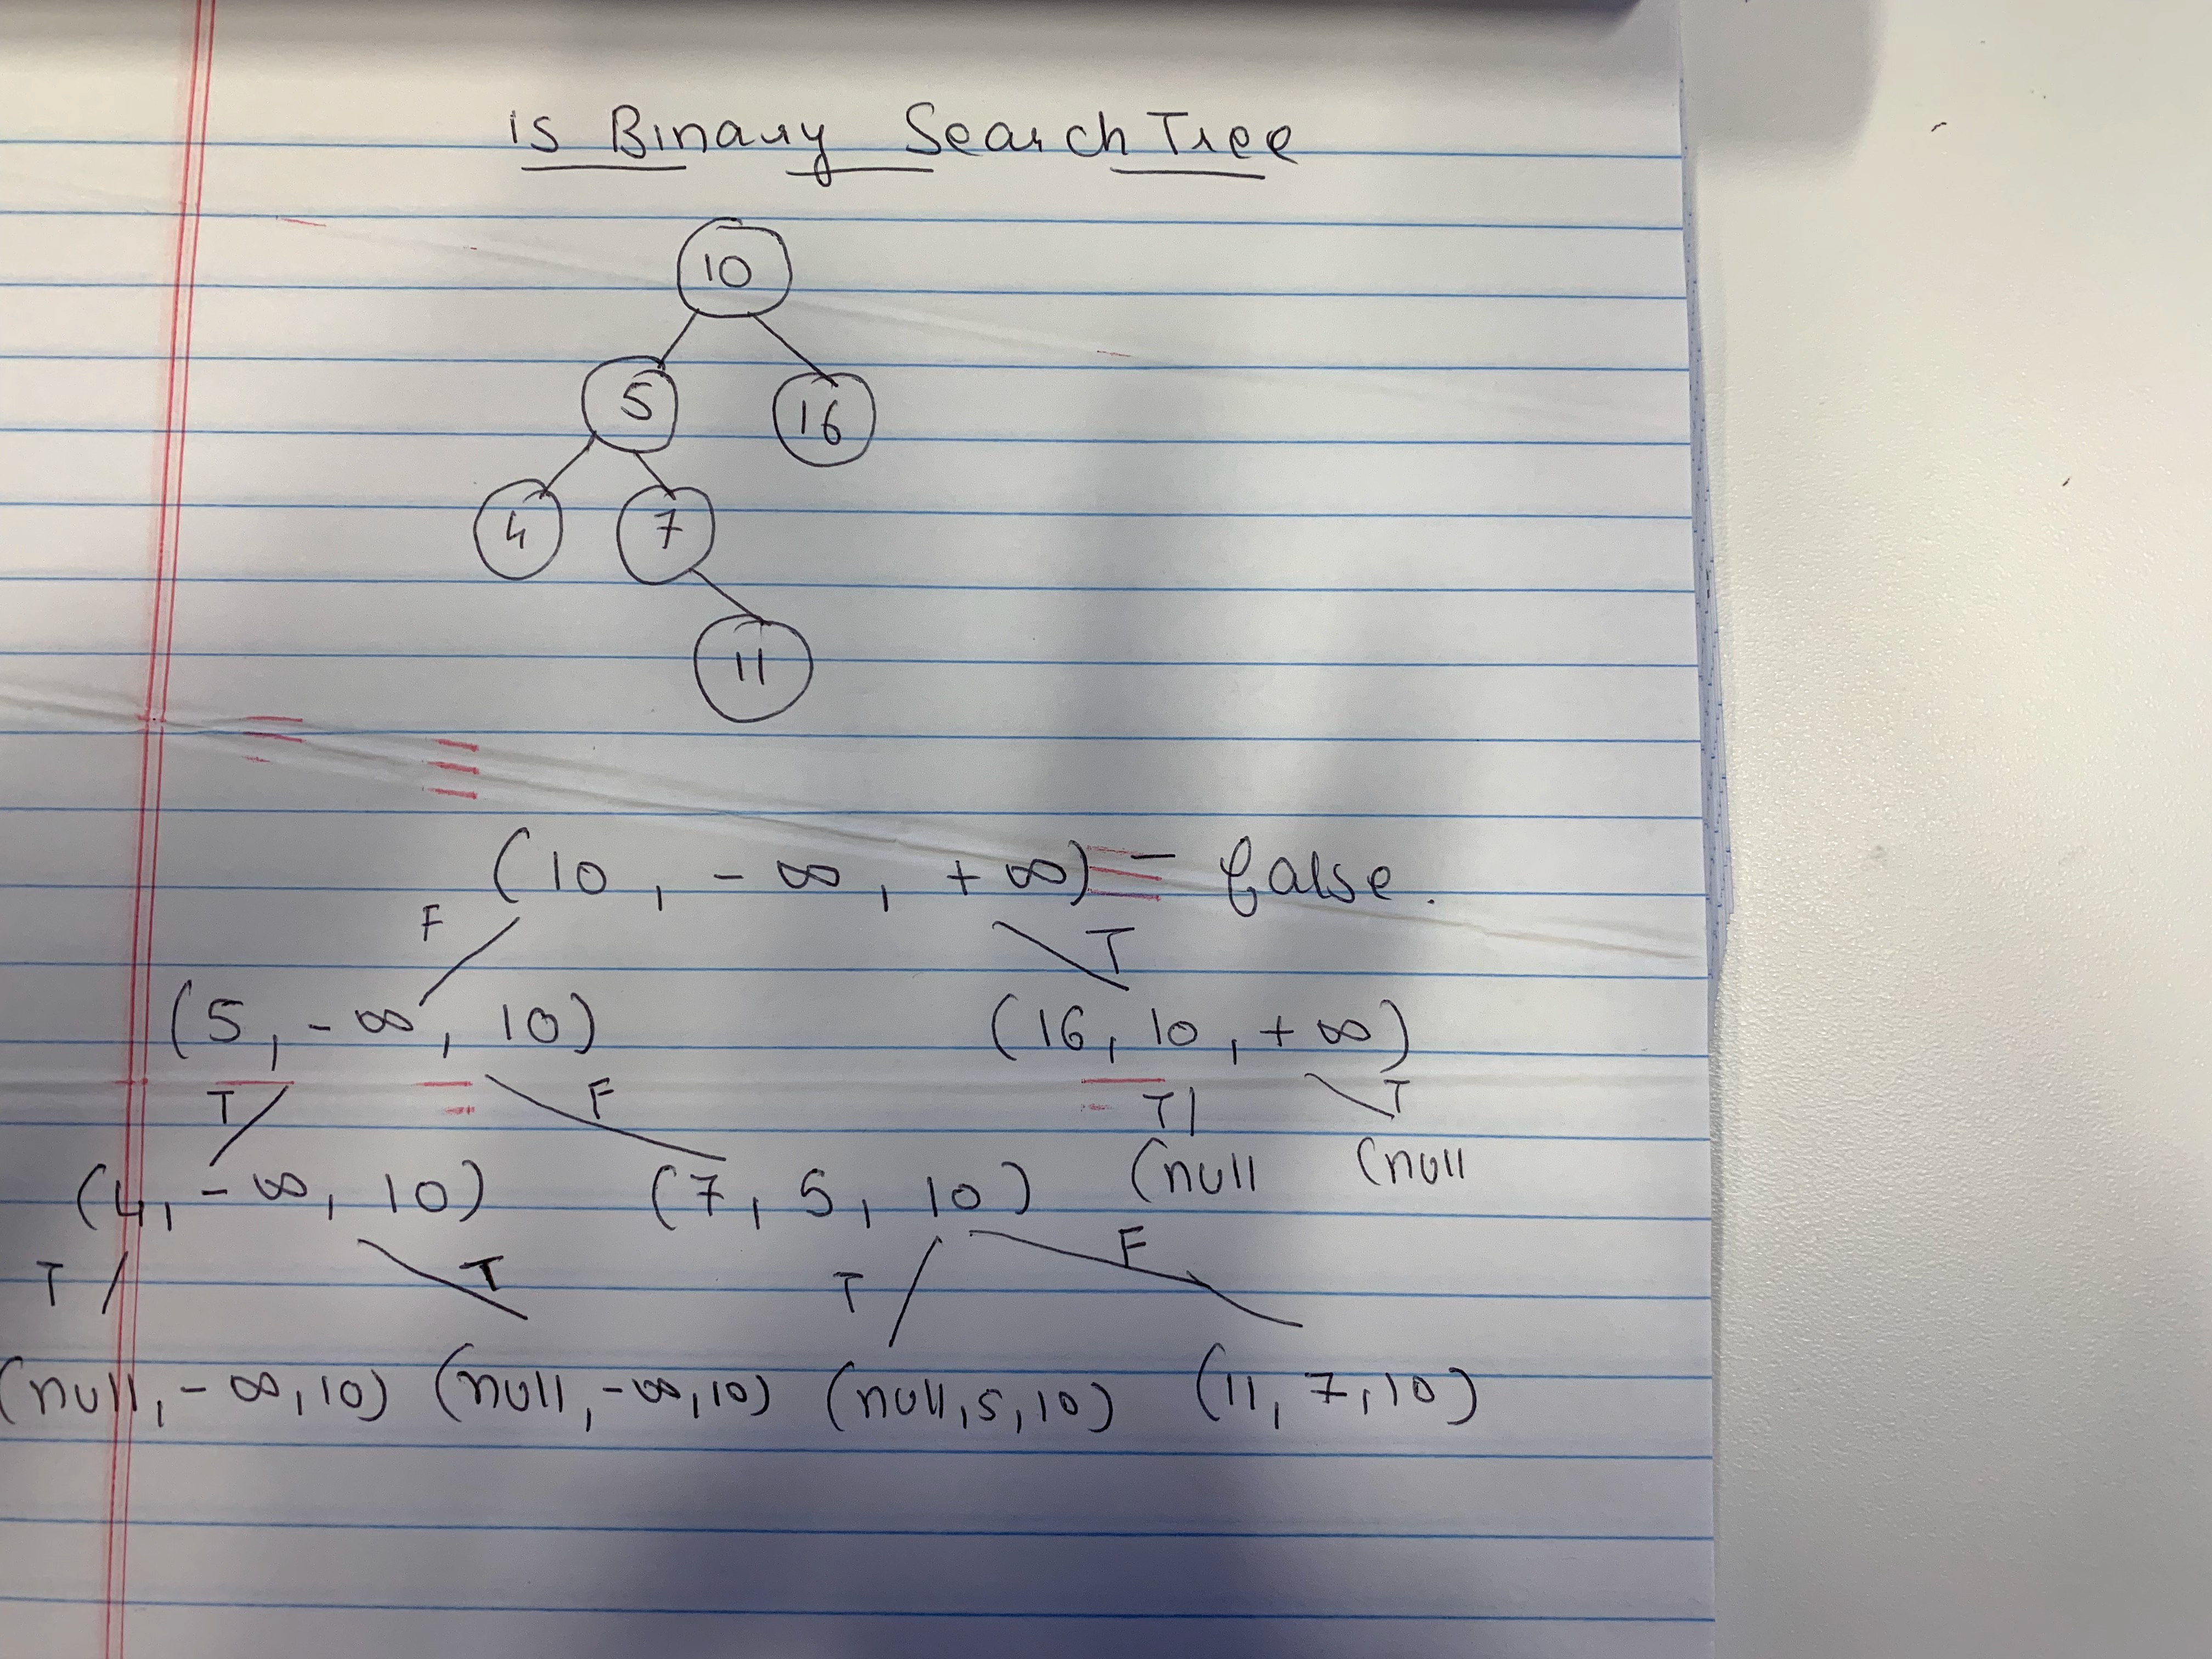 is Binary Search Tree
10
5 16
4 7
11
(10, -∞, +∞) = false.
F T
(5, -∞, 10) (16, 10, +∞)
T F T T
(4, -∞, 10) (7, 5, 10) (null (null
T T T F
(null, -∞, 10) (null, -∞, 10) (null, 5, 10) (11, 7, 10)